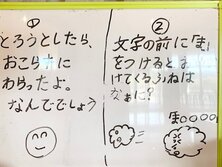 ①
とろうとしたら、
おこらずに
わらったよ。
なんででしょう
②
文字の前に「ま」
をつけると ま
けてくるふねは
なぁに?
=
ま○○○○